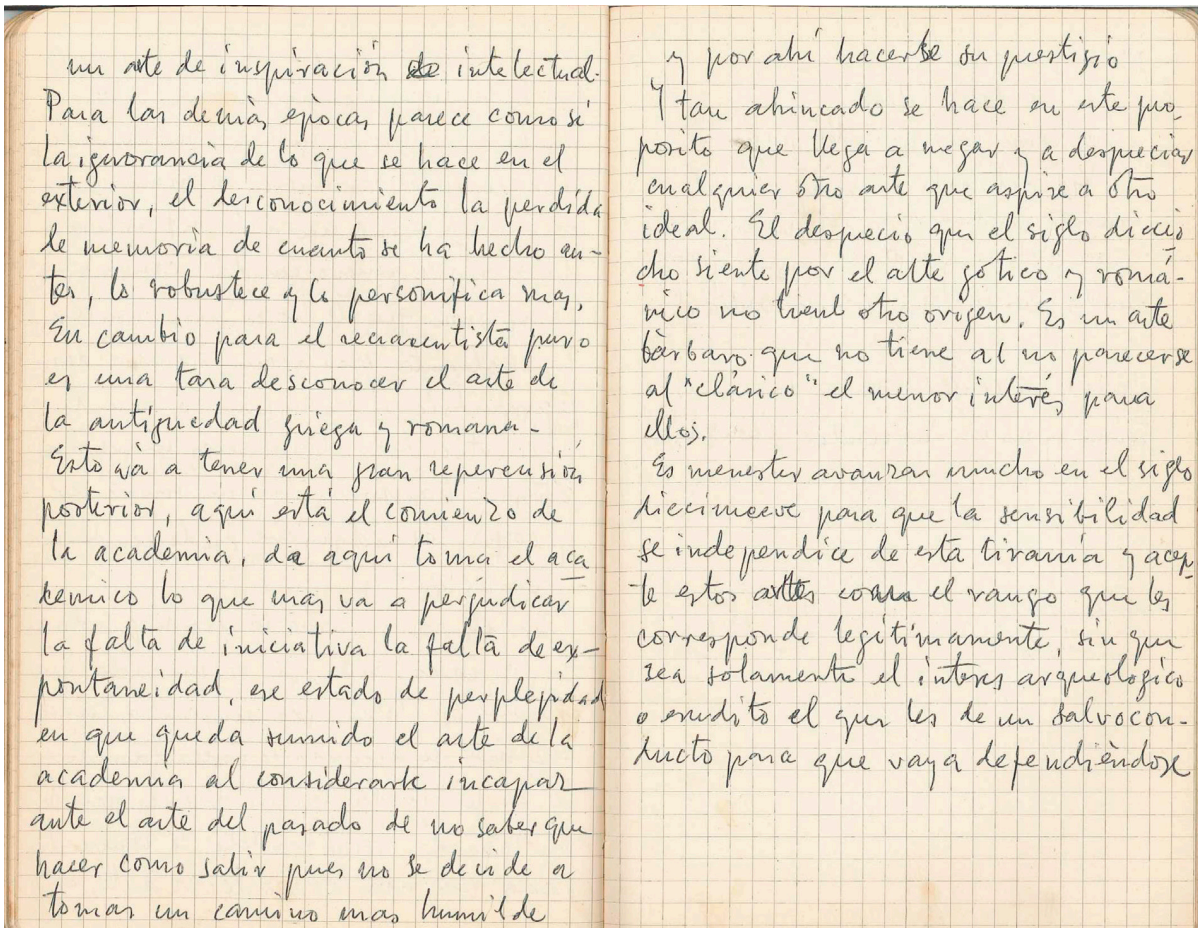 un arte de inspiración intelectual.
Para las demás épocas parece como si
la ignorancia de lo que se hace en el
exterior, el desconocimiento la perdida
de memoria de cuanto se ha hecho an-
tes, lo robustece y lo personifica mas.
En cambio para el renacentista puro
es una tara desconocer el arte de
la antiguedad griega y romana-
Esto và a tener una gran repercusión
posterior, aquí está el comienzo de
la academia, de aquí toma el aca
demico lo que mas va a perjudicar
la falta de iniciativa la falta de ex-
pontaneidad, ese estado de perplejidad
en que queda sumido el arte de la
academia al considerarse incapaz
ante el arte del pasado de no saber que
hacer como salir pues no se decide a
tomar un camino mas humilde
y por ahí hacerse su prestigio
Y tan ahincado se hace en este pro-
posito que llega a negar y a despreciar
cualquier otro arte que aspire a otro
ideal. El desprecio que el siglo diecio
cho siente por el arte gótico y romá-
nico no tiene otro origen. Es un arte
bàrbaro que no tiene al no parecerse
al "clásico" el menor interés para
ellos.
Es menester avanzar mucho en el siglo
diecinueve para que la sensibilidad
se independice de esta tiranía y acep-
te estos artes con el rango que les
corresponde legítimamente, sin que
sea solamente el interes arqueológico
o erudito el que les de un salvocon-
ducto para que vaya defendiéndose